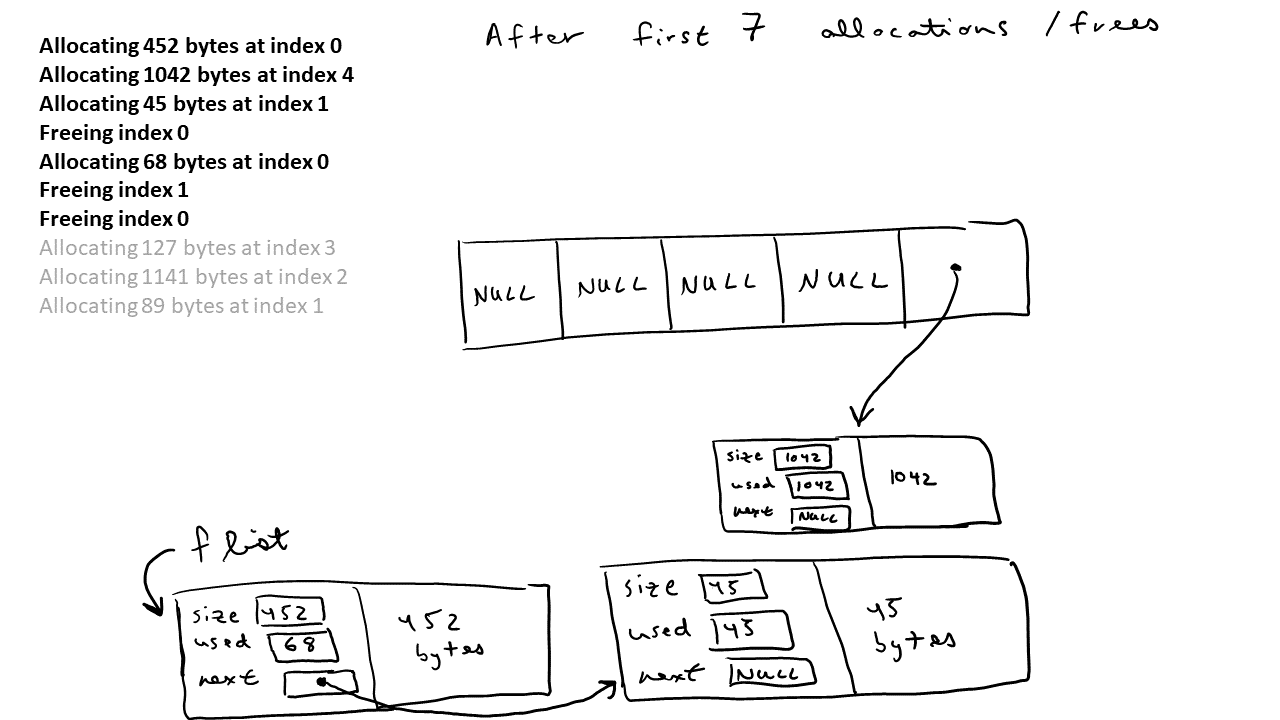 Allocating 452 bytes at index 0
Allocating 1042 bytes at index 4
Allocating 45 bytes at index 1
Freeing index 0
Allocating 68 bytes at index 0
Freeing index 1
Freeing index 0
Allocating 127 bytes at index 3
Allocating 1141 bytes at index 2
Allocating 89 bytes at index 1
After first 7 allocations / frees
NULL NULL NULL NULL
size 1042
used 1042
next NULL
1042
f list
size 452
used 68
next
452
bytes
size 45
used 45
next NULL
45
bytes